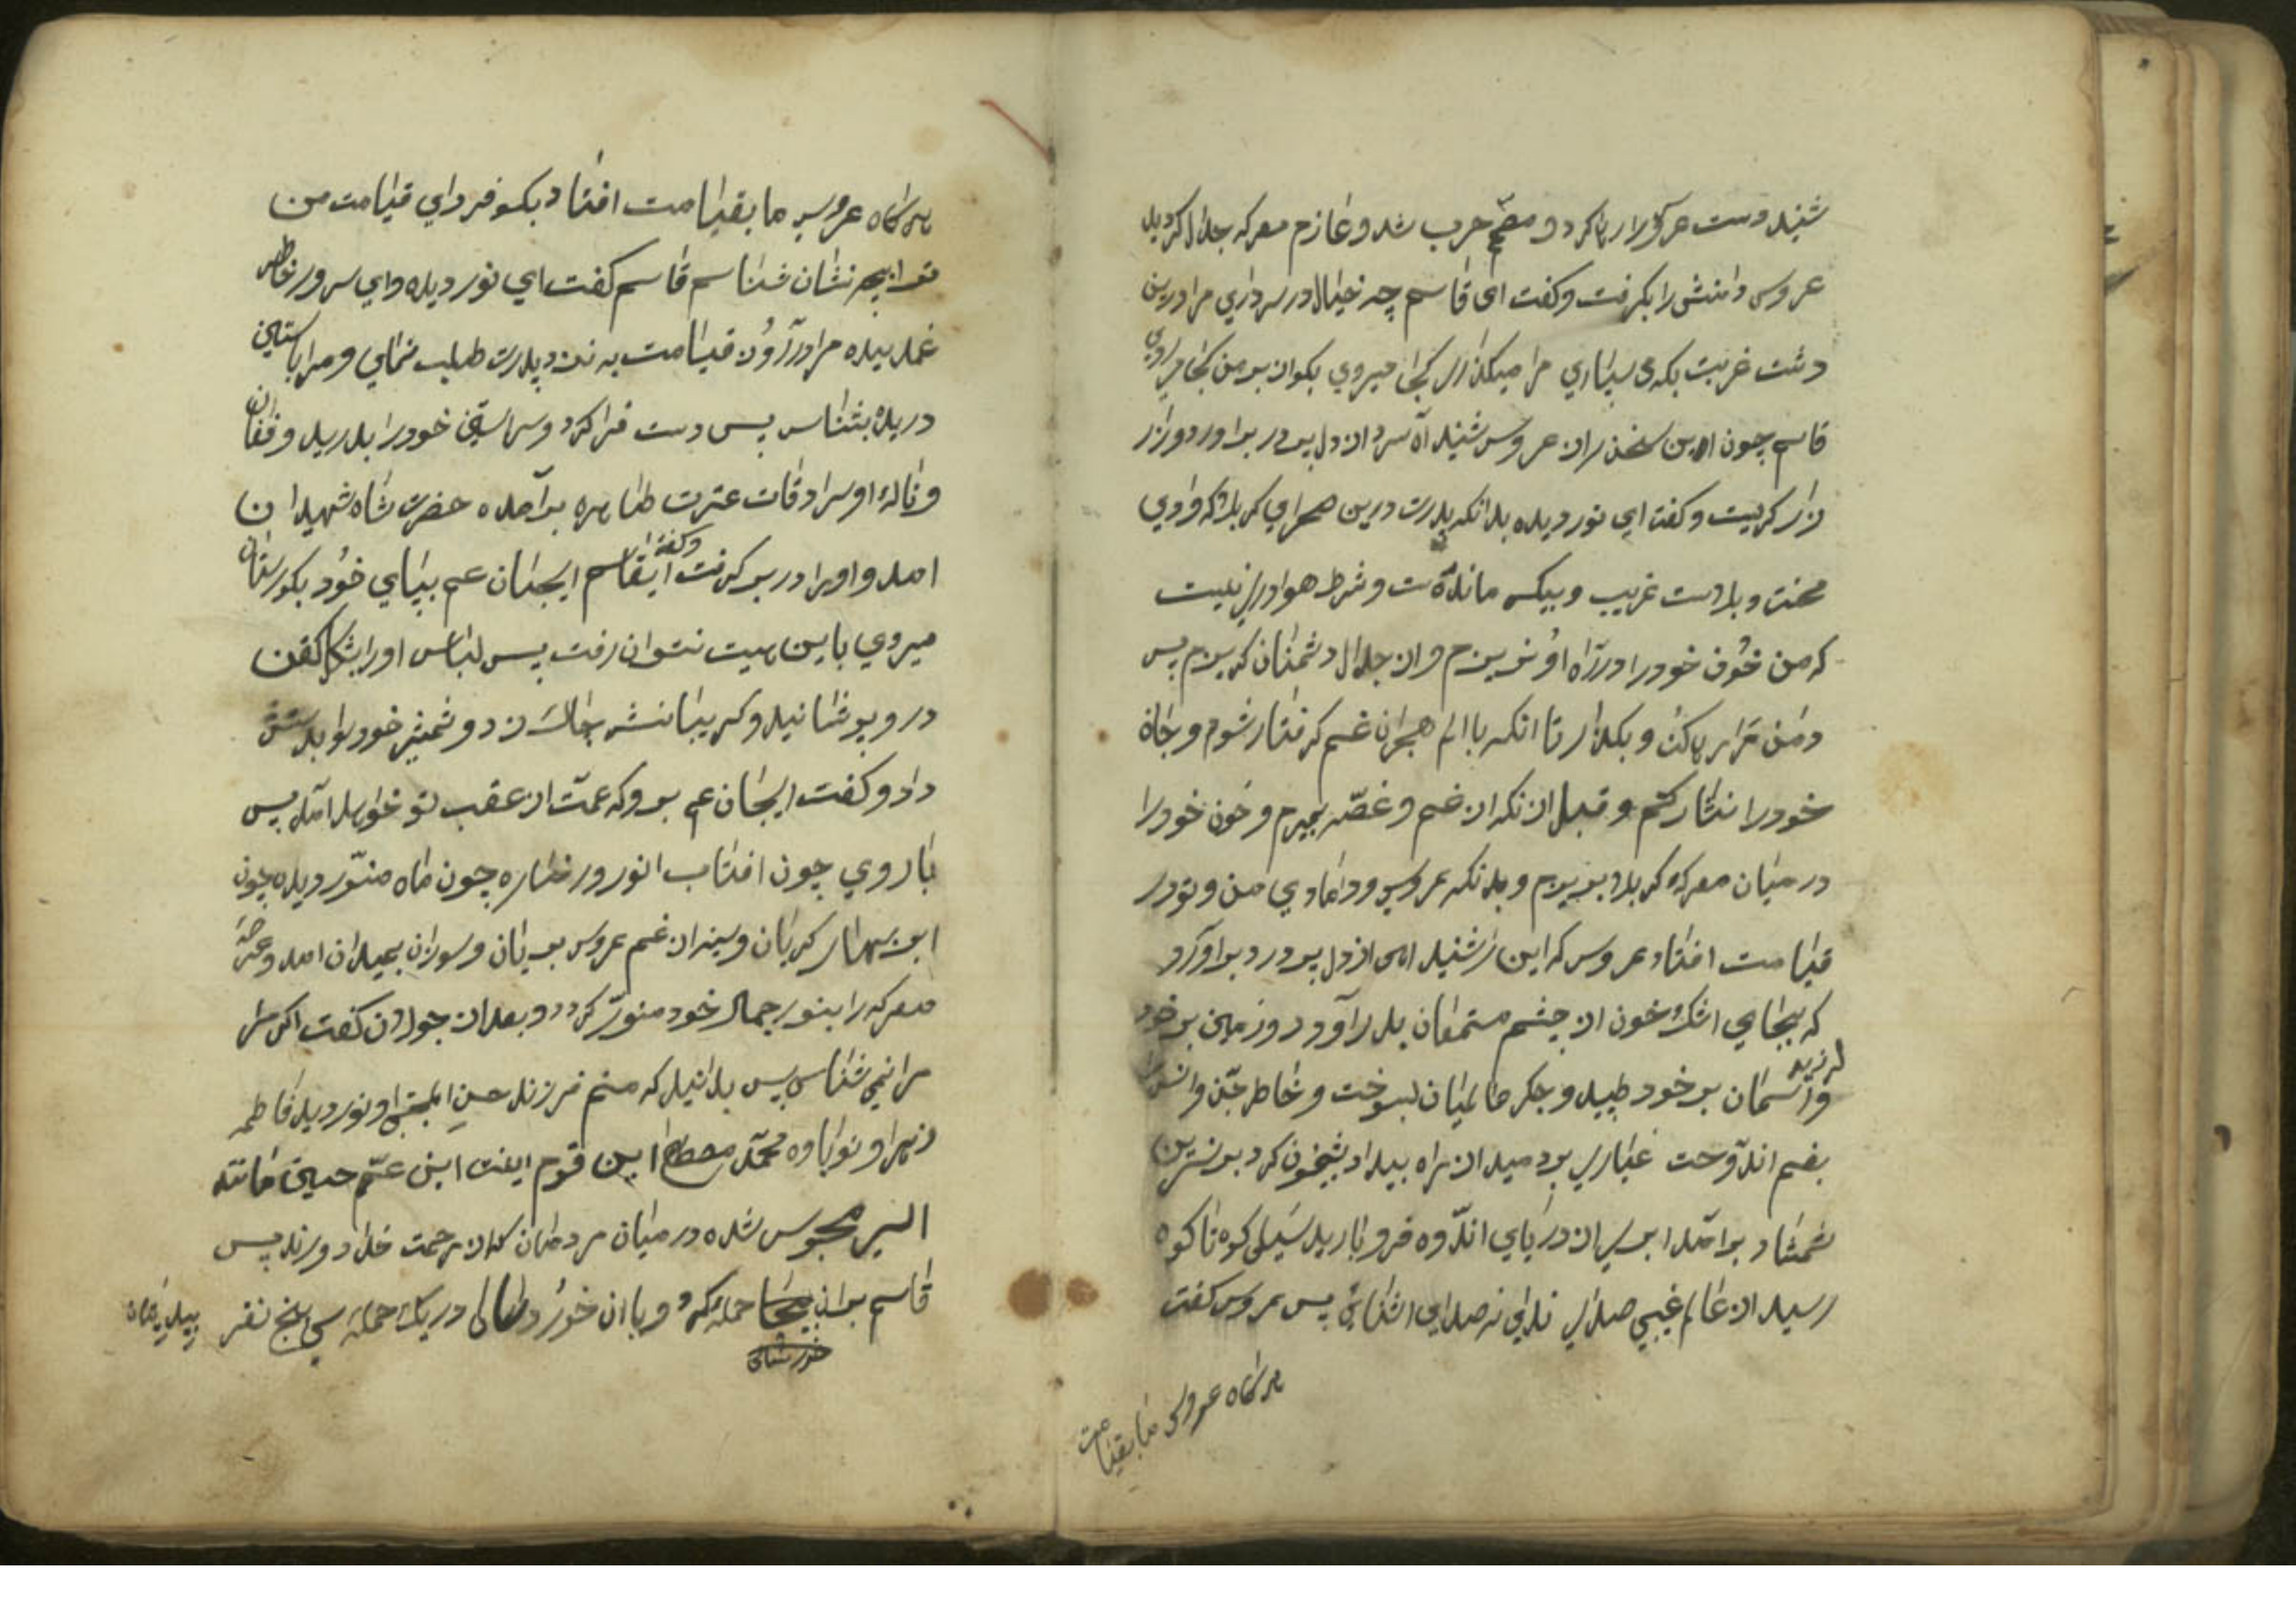 شنید دست عروس را رها کرد و مصمم حرب شد و عازم معرکه جدال کردید
عروس دامنش را بکرفت و کفت ای قاسم چه خیال در سر داری مرا درین
دشت غربت بکه می سپاری مرا میکذاری کجا میروی بکو
قاسم چون این سخن از ان عروس شنید آه سرد از دل پر درد بر اورد و زار
زار کریست و کفت ای نور دیده بدانکه پدرت درین صحرای کربلا که وادی
محنت و بلاست غریب و بیکس مانده است و شرط هواداری نیست
که من خون خود را در راه او نریزم و از جدال دشمنان کریزم پس
دامن مرا رها کن و بکذار تا انکه با الم هجران غم کرفتار شوم و جان
خود را نثار کنم و قبل از نکه از غم و غصه بمیرم و خون خود را
در میان معرکه کربلا بریزم و بدانکه عروسی و دامادی من و تو در
قیامت افتاد عروس که این را شنید اهی از دل پر درد بر اورد
که بجای اشک خون از چشم مستمعان بدر آورد و زمین بر خود
لرزید
و آسمان بر خود طپید و جکر عالمیان بسوخت و خاطر جن و انس را
بغم اندوخت غباری بر دمید از راه بیداد شبیخون کرد بر نسرین
شمشاد بر آمد ابری از دریای اندوه فرو بارید سیلی کوه تا کوه
رسید از عالم غیبی صدای ندایی نه صدای اشنایی پس عروس کفت
هر کاه عروسی ما بقیامت
هر کاه عروسی ما بقیامت افتاد بکو فردای قیامت من
ترا بچه نشان شناسم قاسم کفت ای نور دیده و ای سرور خاطر
غمدیده مرا در آن قیامت به نزد پدرت طلب نمای و مرا باستین
دریده بشناس پس دست فرا کرد و سر استین خود را بدرید و فغان
و ناله از سرادقات عترت طاهره بر آمده حضرت شاه شهیدان
وکفت
امد و او را در بر کرفت ایقاسم ایجان عم بپای خود بکورستان
میروی باین هیت نتوان رفت پس لباس او را بشکل کفن
در و پوشانید و کریبانش چاک زد و شمشیر خود را بدستش
داد و کفت ایجان عم برو که عمت از عقب تو خواهد آمد پس
با روی چون افتاب انور و رخساره چون ماه منور دیده چون
ابر بهار کریان و سینه از غم عروس بریان و سوزان بمیدان امد و عرصه
معرکه را بنور جمال خود منور کرد و بعد از جولان کفت اکر
مرا نمی شناسی پس بدانید که منم فرزند حسن المجتبی و نور دیده فاطمه
زهرا و نواباوه محمد مصطفی این قوم اینست ابن عم حسین مانند
اسیر محبوس شده در میان مردمان که از رحمت خدا دورند پس
قاسم بر ان حمله کرد و با ان خورد سالی در یک حمله سی پنج نفر